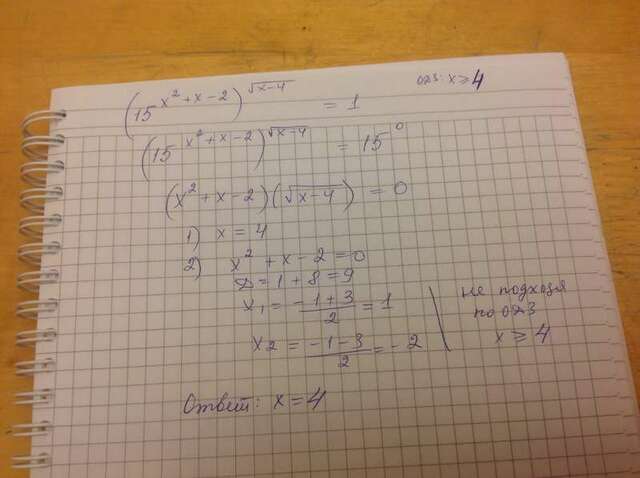 (15^(x²+x-2))^√(x-4) = 1 ОДЗ: x≥4
(15^(x²+x-2))^√(x-4) = 15⁰
(x²+x-2)(√(x-4)) = 0
1) x = 4
2) x²+x-2=0
D=1+8=9
x₁ = (-1+3)/2 = 1
x₂ = (-1-3)/2 = -2
не подходя
по ОДЗ
x≥4
Ответ: x=4